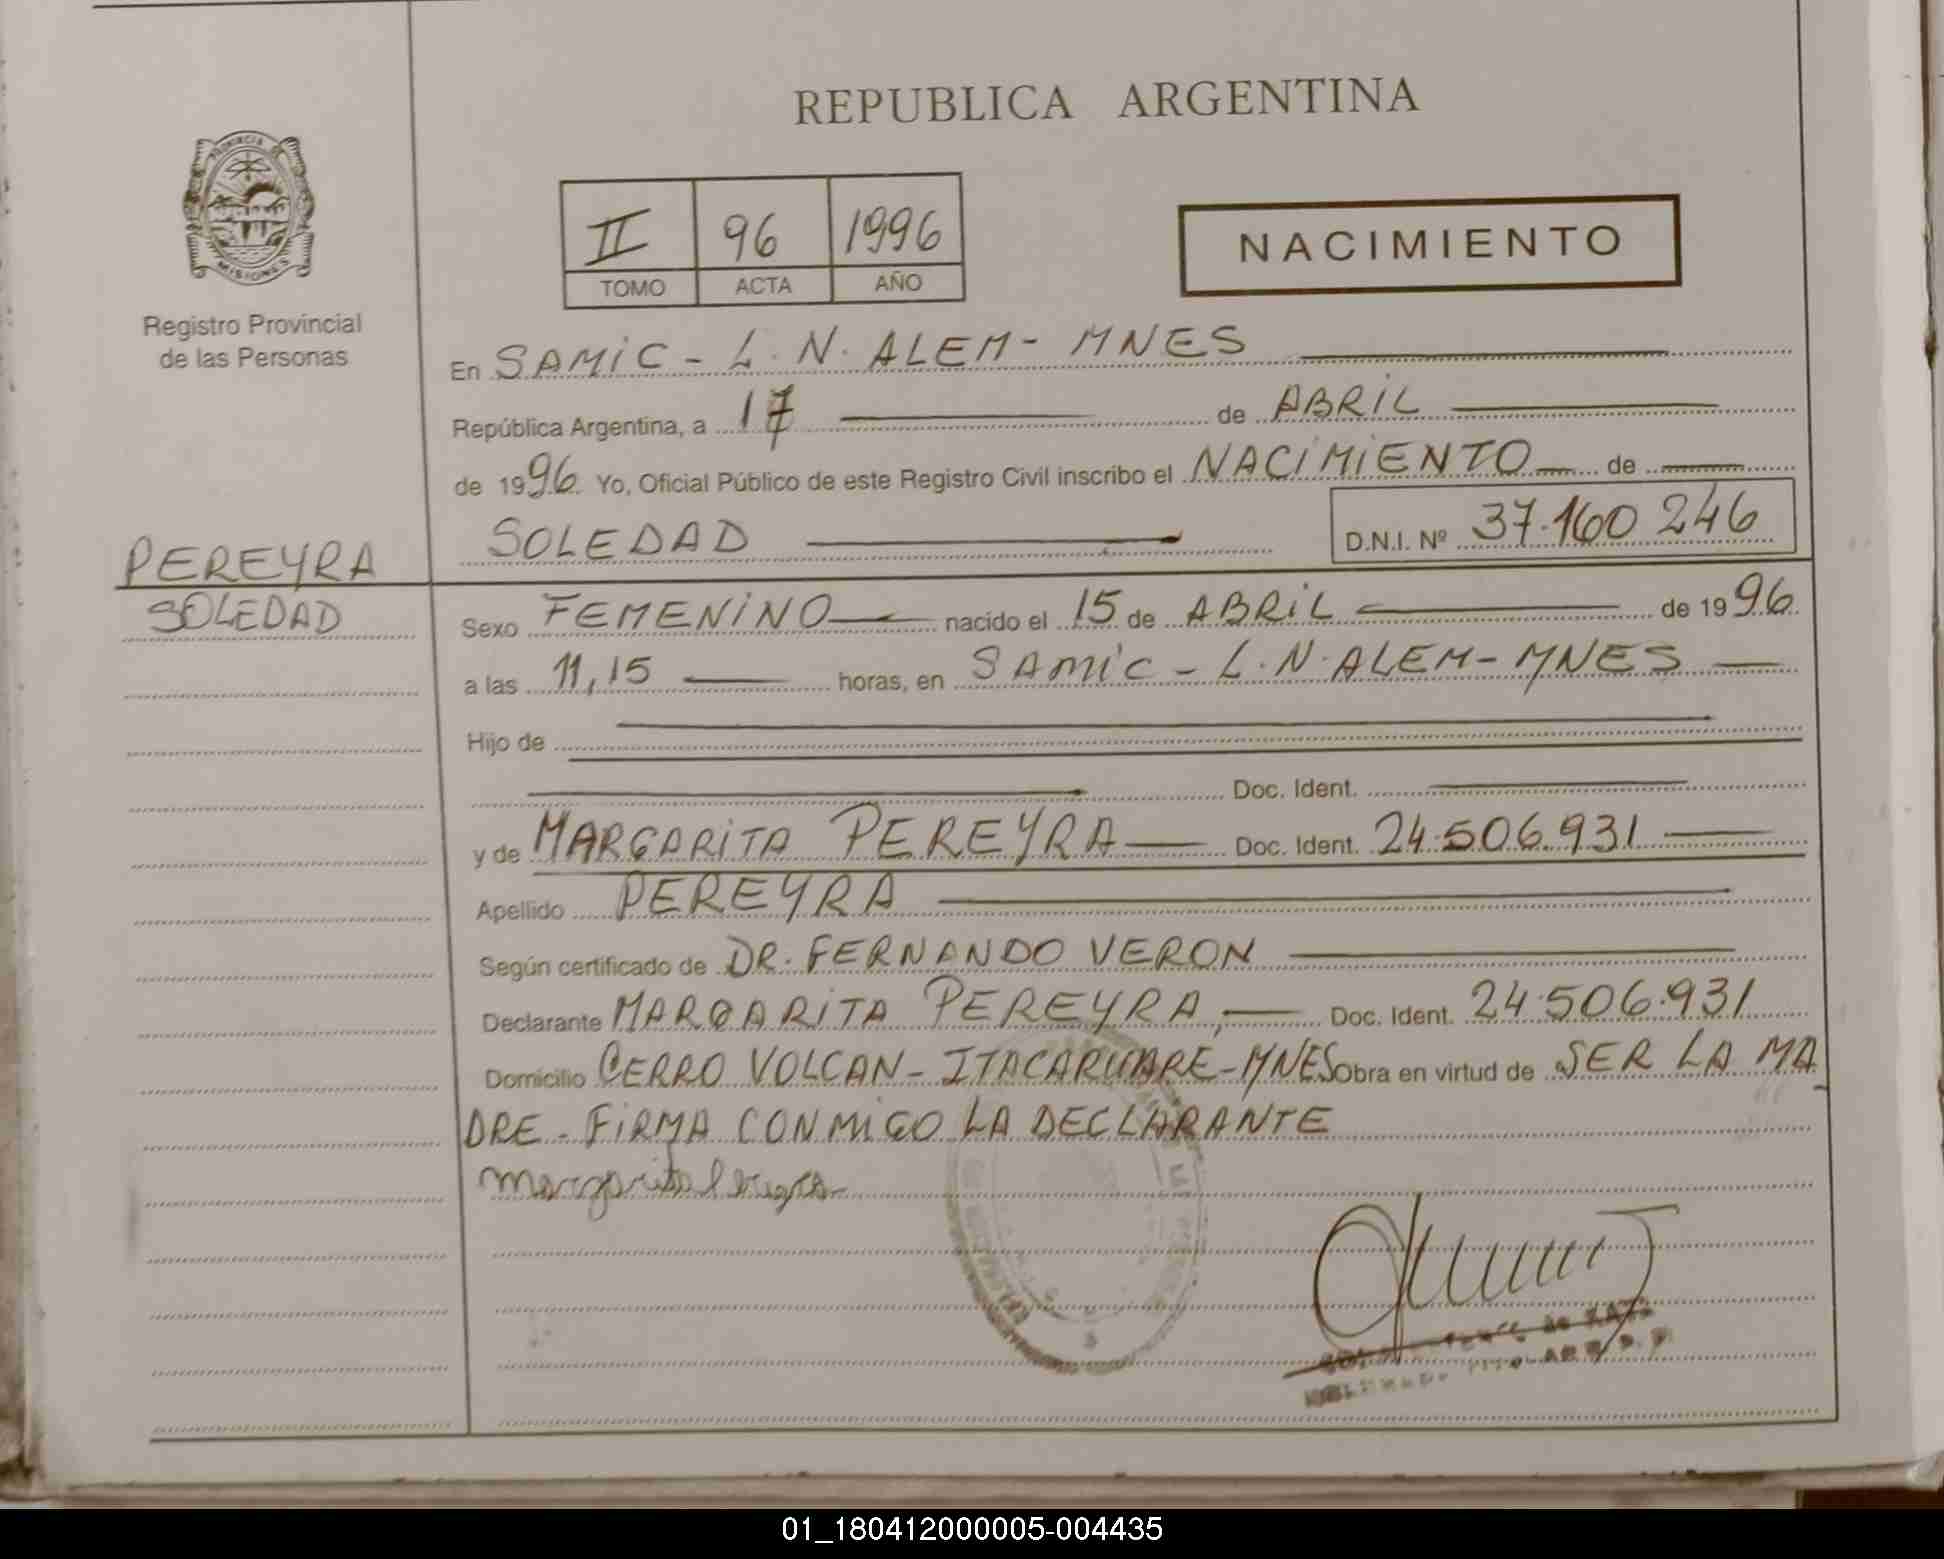 REPUBLICA ARGENTINA
PROVINCIA DE
MISIONES
Registro Provincial
de las Personas
II 96 1996
TOMO ACTA AÑO
NACIMIENTO
En SAMIC - L. N. ALEM - MNES
República Argentina, a 17 de ABRIL
de 1996 Yo, Oficial Público de este Registro Civil inscribo el NACIMIENTO de
SOLEDAD D.N.I. Nº 37.160 246
PEREYRA
SOLEDAD
Sexo FEMENINO nacido el 15 de ABRIL de 1996
a las 11,15 horas, en SAMIC - L. N. ALEM - MNES
Hijo de
Doc. Ident.
y de MARGARITA PEREYRA Doc. Ident. 24.506.931
Apellido PEREYRA
Según certificado de DR. FERNANDO VERON
Declarante MARGARITA PEREYRA, Doc. Ident. 24.506.931
Domicilio CERRO VOLCAN - ITACARUARE - MNES Obra en virtud de SER LA MA
DRE - FIRMA CONMIGO LA DECLARANTE
Margarita Pereyra
01_180412000005-004435